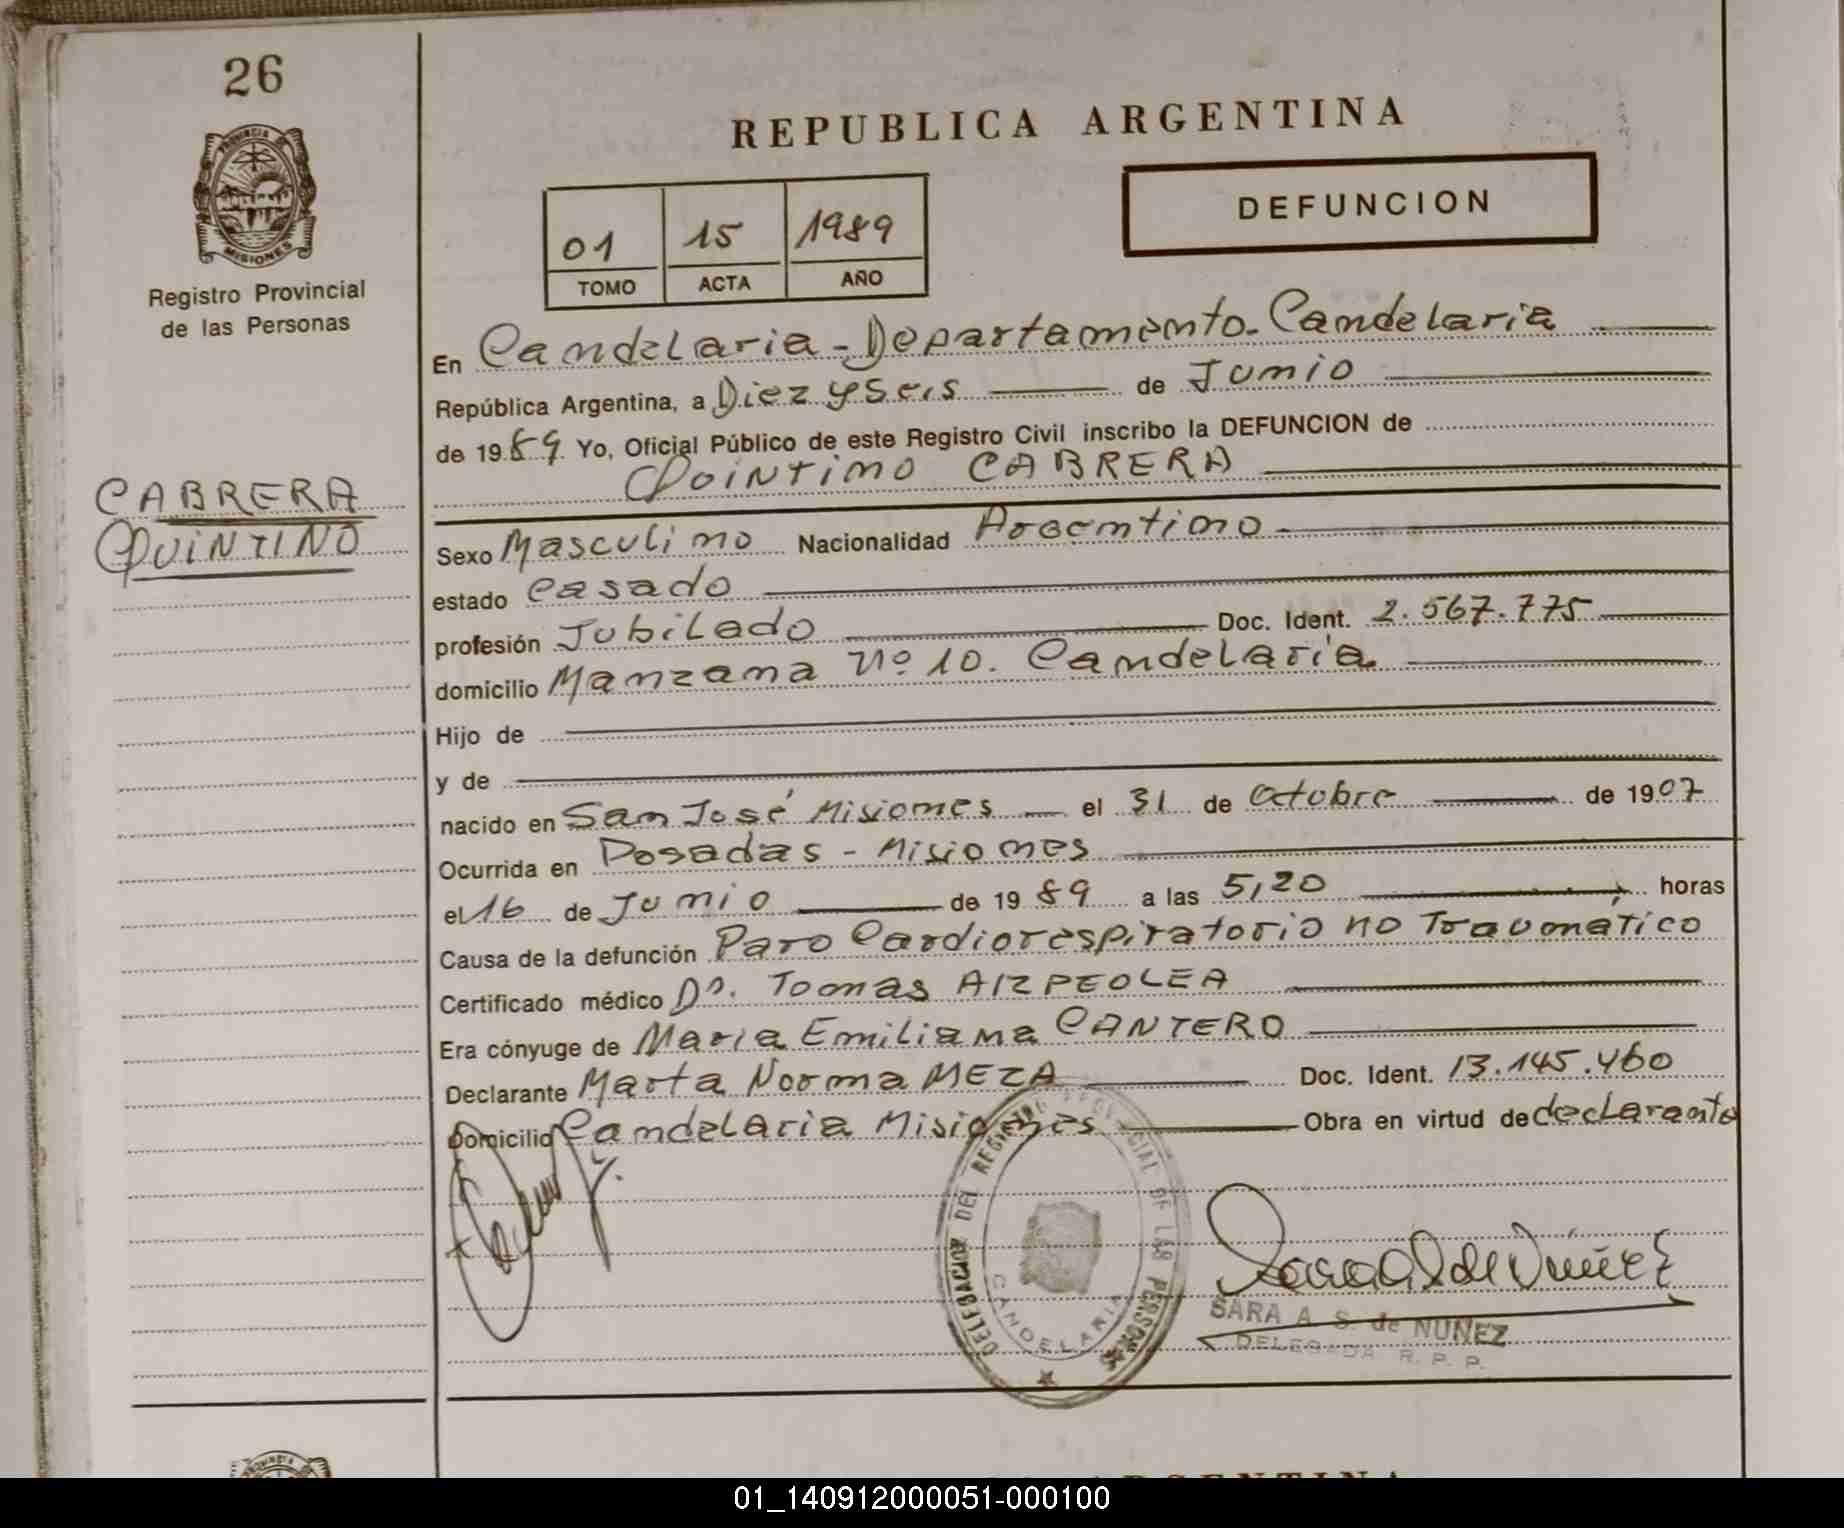 26
PROVINCIA
MISIONES
Registro Provincial
de las Personas
CABRERA
QUINTINO
REPUBLICA ARGENTINA
01 15 1989
TOMO ACTA AÑO
DEFUNCION
En Candelaria - Departamento - Candelaria
República Argentina, a Diez y Seis de Junio
de 1989 Yo, Oficial Público de este Registro Civil inscribo la DEFUNCION de
Quintino CABRERA
Sexo Masculino Nacionalidad Argentino
estado Casado
profesión Jubilado Doc. Ident. 2.567.775
domicilio Manzana Nº 10. Candelaria.
Hijo de
y de
nacido en San José Misiones el 31 de Octubre de 1907
Ocurrida en Posadas - Misiones
el 16 de Junio de 1989 a las 5,20 horas
Causa de la defunción Paro Cardiorespiratorio no Traumático
Certificado médico Dr. Tomas AIZPEOLEA
Era cónyuge de Maria Emiliana CANTERO
Declarante Marta Norma MEZA Doc. Ident. 13.145.460
Domicilio Candelaria Misiones Obra en virtud de declarante
DELEGACION DEL REGISTRO PROVINCIAL DE LAS PERSONAS
CANDELARIA
SARA A. S. de NUÑEZ
DELEGADA R. P. P.
ARGENTINA
01_140912000051-000100